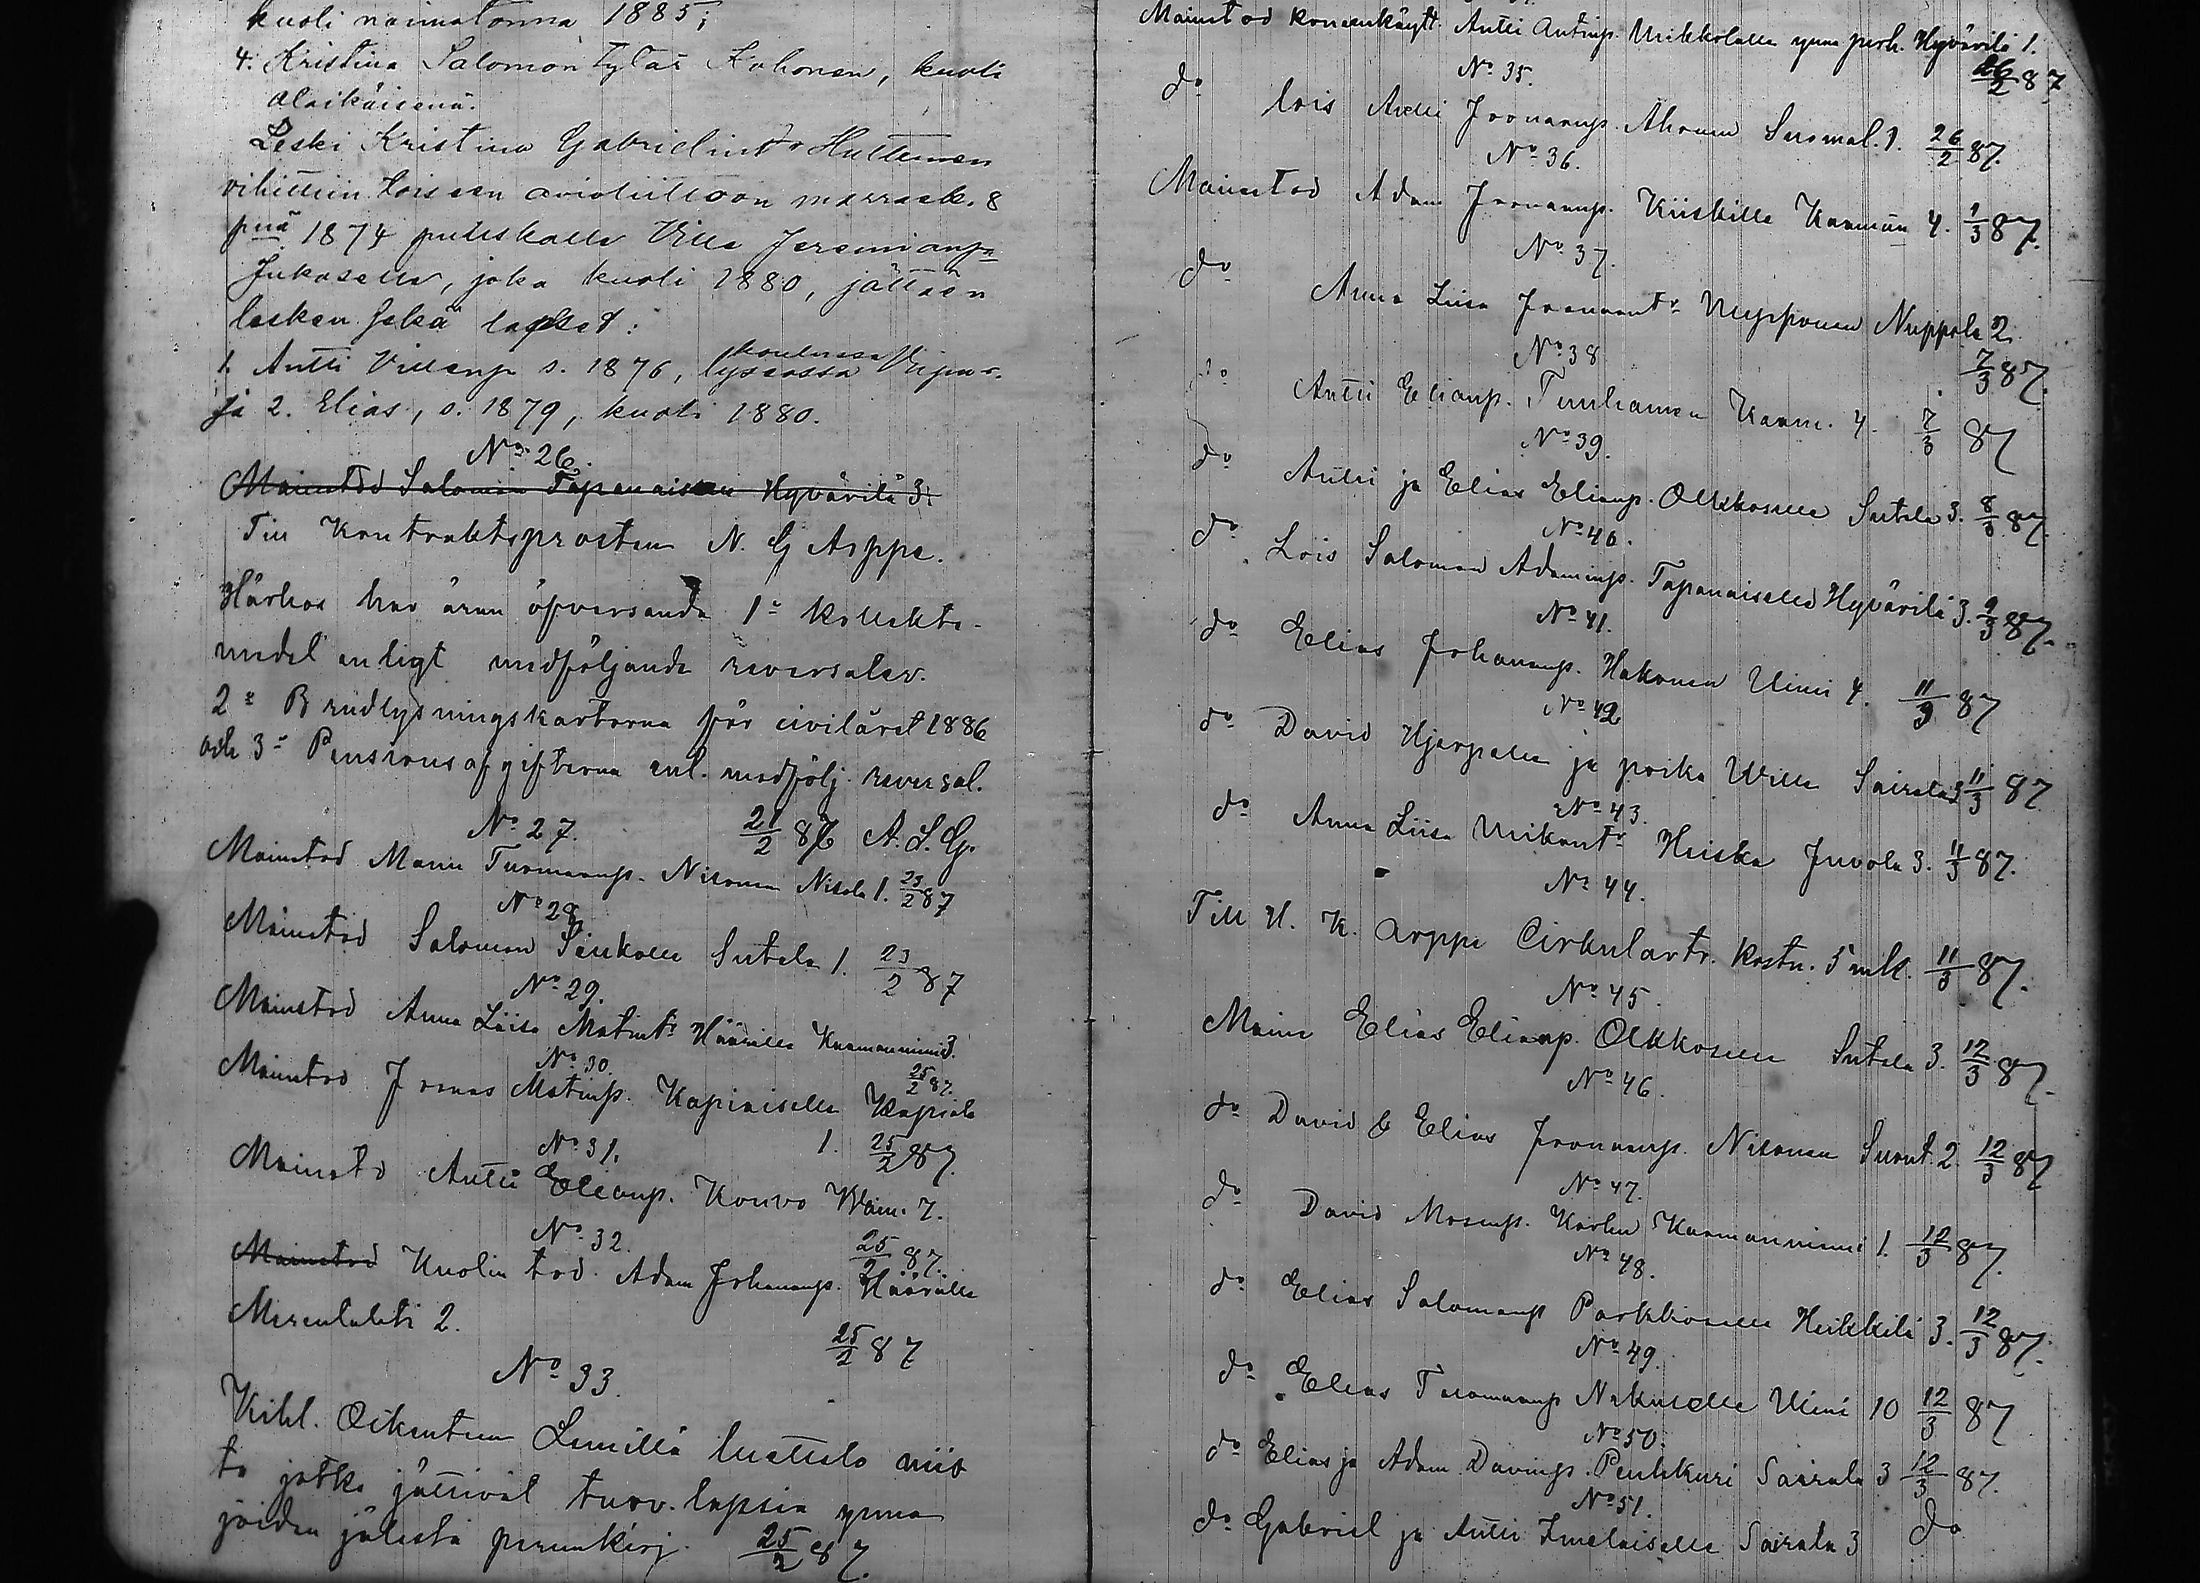 kuoli naimatonna 1885;
4. Kristina Salomon tytär Kohonen, kuoli
alaikäisenä.
Leski Kristina Gabrielint:r Huttunen
vihittiin toiseen avioliittoon marrask. 8
pnä 1874 puteskalle Ville Jeremianp:
Jukaselle, joka kuoli 1880, jättäen
lesken sekä lapset:
1. Antti Villenp. s. 1876, koulussa
lyseossa
ja 2. Elias, s. 1879, kuoli 1880.
No 26.
Mainetod Salomon Tapanaisen Hyvärilä 3.
Till Kontraktsprosten N. G Arppe.
Härhos har äran öfversända 1o kollekts-
medel enligt medföljande reversaler.
2o Brudlysningskartorna för civilåret 1886
och 3o Pensionsafgifterna enl. medfölj. reversal.
No 27. 21/2 87 A. L. G.
Mainetod Mooni Tuomaanp. Nisonen Nisola 1. 23/2 87
No 28
Mainetod Salomon Sinkolle Sutela 1. 23/2 87
No 29.
Mainetod Anna Liisa Matint:r Häärälle Kaamanniemi 3.
25/2 87.
No 30.
Mainetod Joonas Matinp. Kapiaiselle Kapiala
1. 25/2 87.
No 31.
Mainetd Antti Eliaanp. Konvo 7.
25/2 87.
No 32.
Mainetod Kuolin tod. Adam Johananp. Häärälle
Merenlahti 2.
25/2 87
No 33.
Kihl. Oikeuteen Lemillä luettelo niis
tä jotka jättivät turv. lapsia ynnä
joiden jälestä perunkirj. 25/2 87.
Mainetod koneenkäytt. Antti Antinp. Mikkolalle ynnä perh. Hyvärilä 1.
26/2 87
No 35.
do lois Antti Joonaanp. Ahonen Suomal. 1. 26/2 87.
No 36.
Mainetod Adam Joonaanp. Kiiskille Kaaman 4. 1/3 87.
No 37.
do Anna Liisa Joonaant:r Nuppola 2.
7/3 87.
No 38
do Antti Eliaanp. Kaam. 4. 7/3 87
No 39.
do Antti ja Elias Eliaanp. Olkkoselle Sutela 3. 8/3 87.
No 40.
do Lois Salomon Adaminp. Tapanaiselle Hyvärilä 3. 9/3 87.
No 41.
do Elias Johananp. Hakonen Uimi 4. 11/3 87
No 42
do David Hjerpelle ja poika Wille Sairala 3 11/3 87
No 43.
do Anna Liisa Mikont:r Heiska Juvola 3. 11/3 87.
No 44.
Till H. K. Arppe Cirkulärtr. kostn. 5 mk. 11/3 87.
No 45.
Maine Elias Eliaanp. Olkkoselle Sutela 3. 12/3 87.
No 46.
do David & Elias Joonaanp. Nisonen Suont. 2. 12/3 87
No 47.
do David Mosesp. Kaamanniemi 1. 12/3 87.
No 48.
do Elias Salomonp Parkkoselle Heikkilä 3. 12/3 87.
No 49.
do Elias Tuomaanp Nakuselle Uimi 10 12/3 87
No 50.
do Elias ja Adam Davinp. Penkkuri Sairala 3 12/3 87.
No 51.
do Gabriel ja Antti Imelaiselle Sairala 3 do